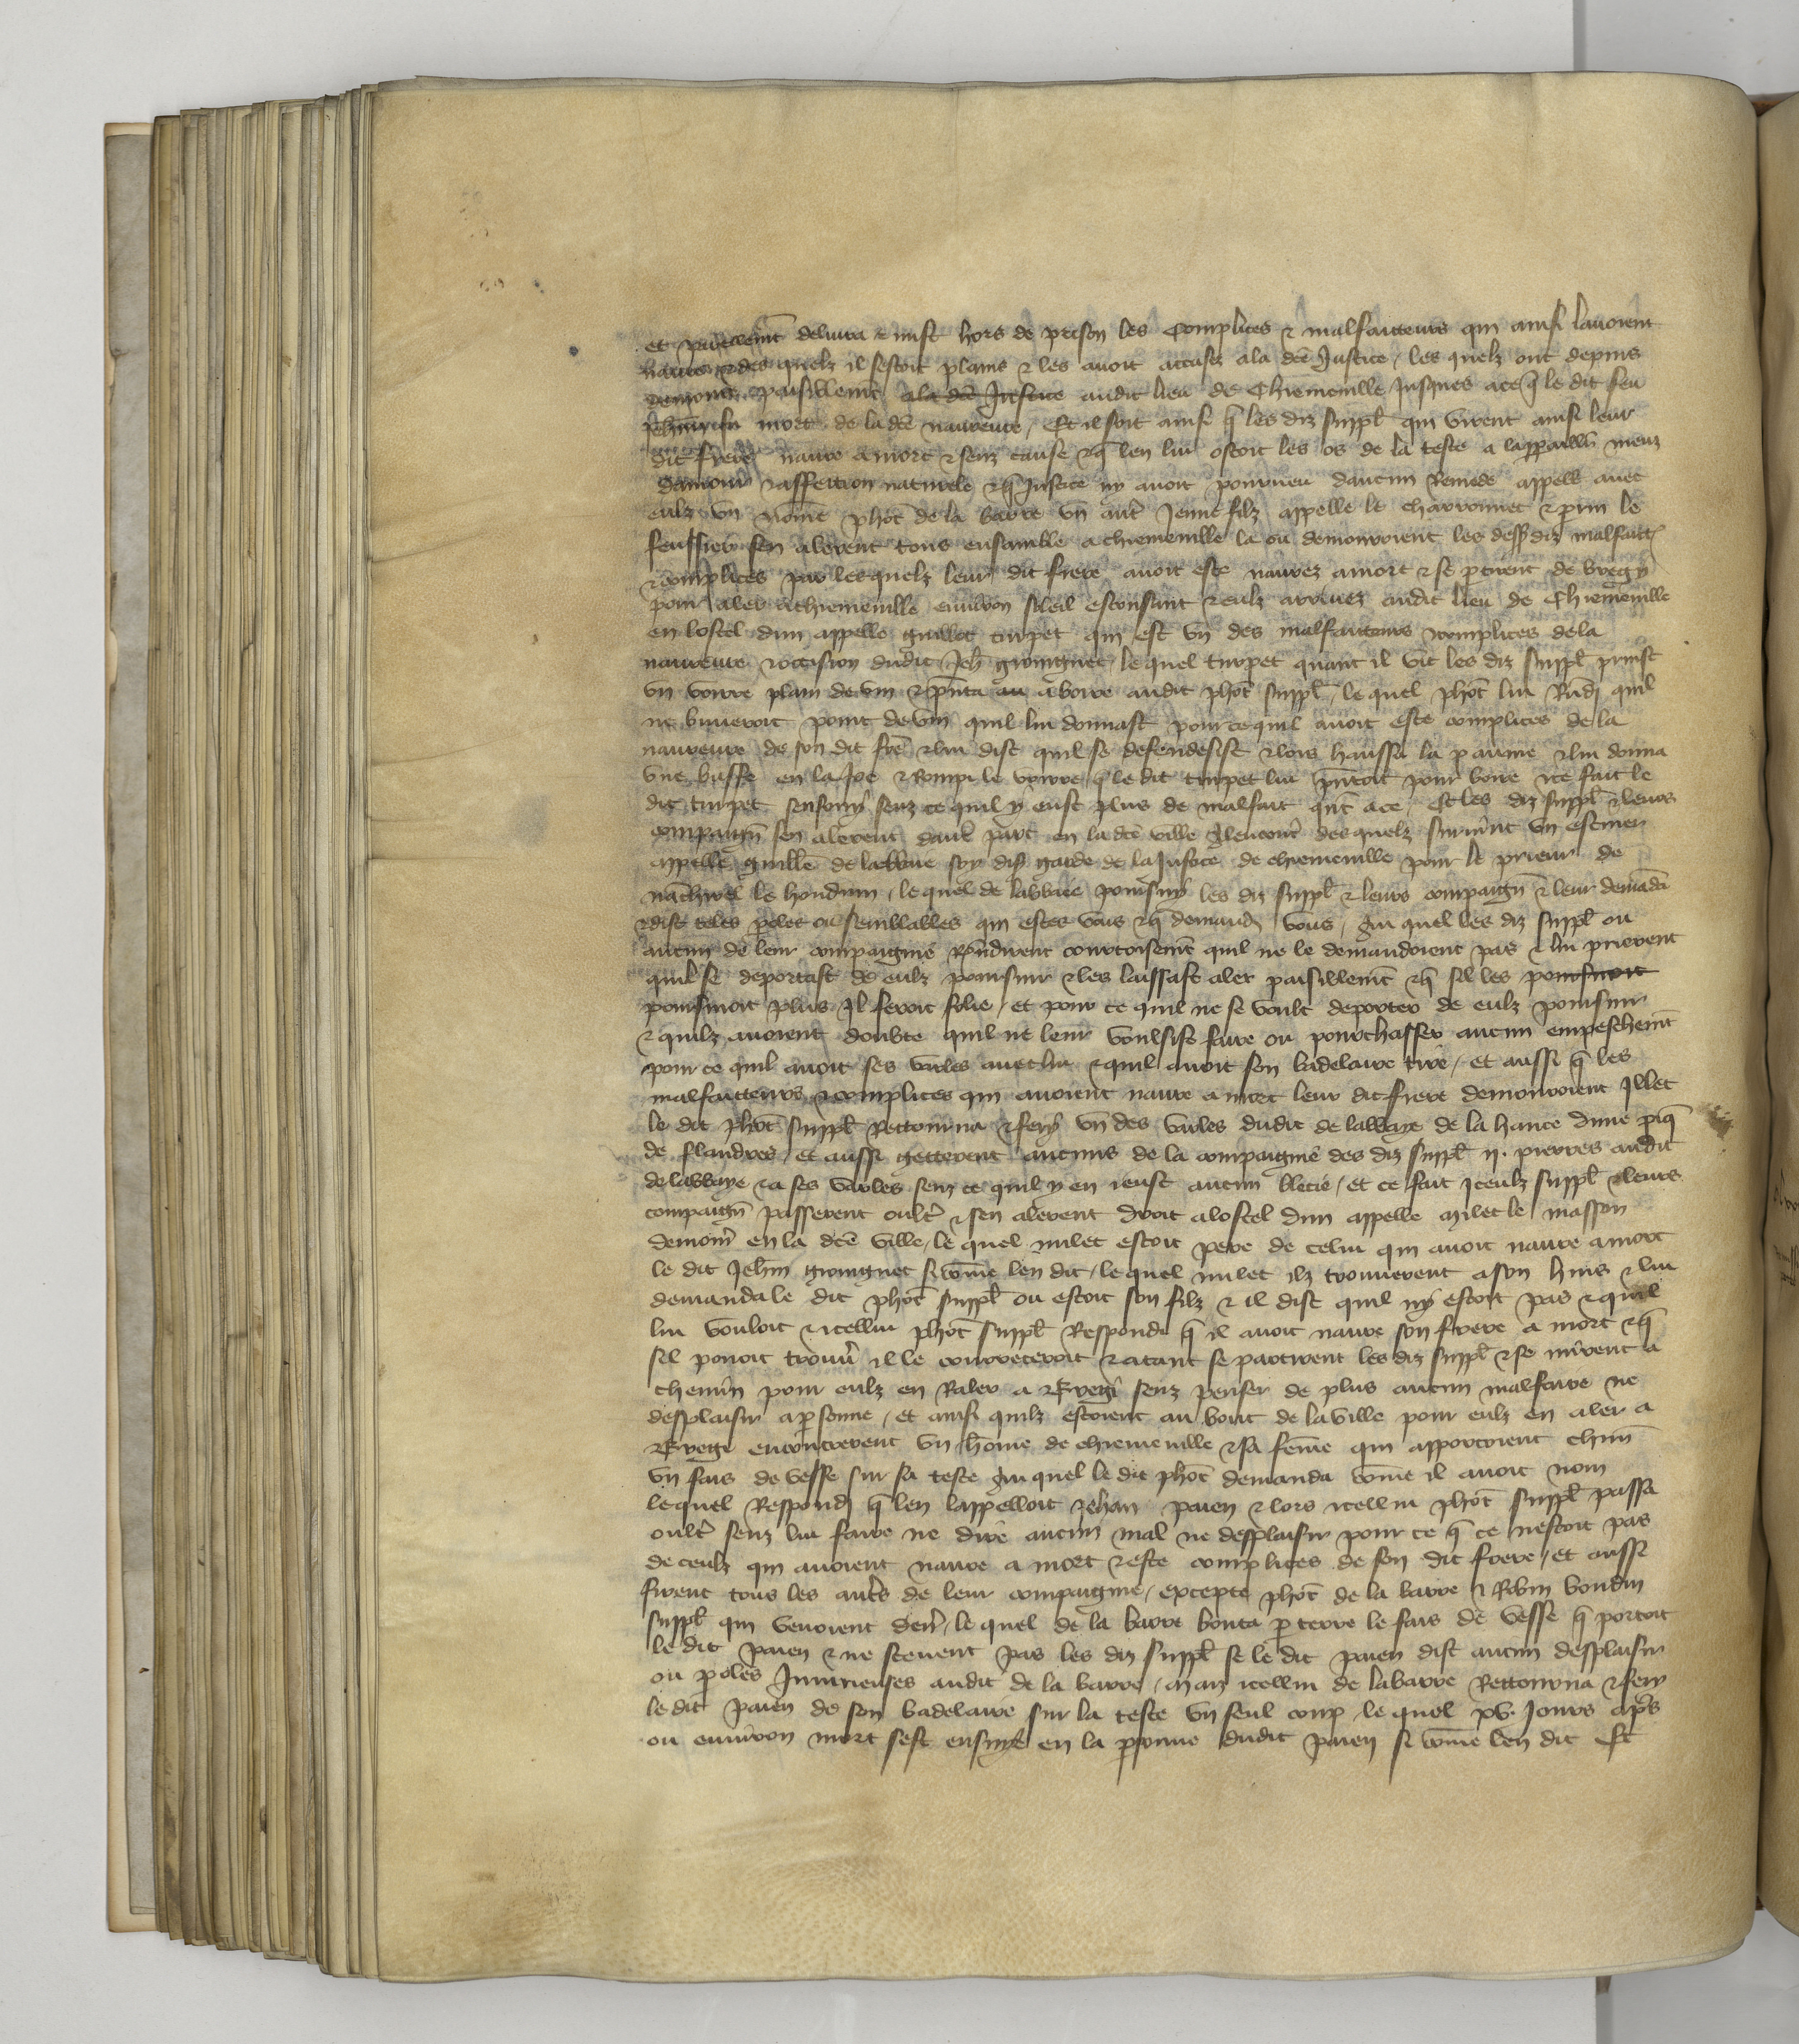 et delivra & mist hors de prison les complices & malfaicteurs qui ainsi lavoient
navre & des quelz il sestoit plains & les avoit accusez a la dce Justice / les quelz ont depuis
paisiblemt a la dce Justice audit lieu de Chiemenville jusques a ce q̃ le dit feu
mort de la dce navreure / Et il soit ainsi q̃ les diz suppl̃ qui virent ainsi leur
dit frere navre a mort & senz cause & q̃ len lui ostoit les os de la teste a lappareill̃ meuz
damour & affection naturele & q̃ Justice ny avoit pourveu daucun Remede appelle avec
eulz vn nom̃e phõt de la barre vn aut̃ jeune filz appelle le charronnet & prin le
sen alerent tous ensamble a chiemenville la ou demouroient les desp̃diz malfaict̃
& complices par les quelz leur dit frere avoit este navrez a mort & se ptirent de Bregy
pour aler a chiemenville environ soleil esconsant & eulz arrivez audit lieu de Chiemenville
en lostel dun appelle guillot turpet qui est vn des malfaicteurs & complices de la
navreure & occision dudit Jeh̃ groingnet / le quel turpet quant il vit les diz suppl̃ prinst
vn voirre plain de vin & pñta au a boire audit phõt suppl̃ / le quel phõt lui Rñdi quil
ne buveroit point de vin quil lui donnast pour ce quil avoit este complices de la
navreure de son dit frẽ & lui dist quil se defendesist & lors haussa la paume & lui donna
vne buffe en la Joe & Rompi le voirre q̃ le dit turpet lui pñtoit pour boire & ce fait le
dit turpet senfouy senz ce quil y eust plus de malfait qñt a ce / Et les diz suppl̃ & leurs
compaign̄ sen alerent dautr̃ part en la dce ville a lencontr̃ des quelz survint vn escuier
appelle guill̃e de labbaie soy dis̃ garde de la Justice de chiemenville pour le prieur de
le hondouin / le quel de labbaie poursuy les diz suppl̃ & leurs compaign̄ & leur demãda
& dist teles poles ou semblables qui estes vous & q̃ demandez vous / Au quel les diz suppl̃ ou
aucun de leur compaignie Rñdirent courtoisemt quil ne le demandoient pas & lui prierent
quil se deportast de eulz poursuir & les laissast aler paisiblemt & q̃ sil les poursuioit
poursuioit plus Il feroit folie / et pour ce quil ne se voult deporter de eulz poursuir
& quilz avoient doubte quil ne leur voulsist faire ou pourchasser aucun empeschemt
pour ce quil avoit ses varles avec lui & quil avoit son badelaire tire / et aussi q̃ les
malfaicteurs & complices qui avoient navre a mort leur dit frere demouroient Illec
le dit phõt suppl̃ Rettourna & fery vn des varles dudit de labbaye de la hance dune piq̃
de flandres / et aussi getterent aucuns de la compaignie des diz suppl̃ ij. pierres audit
de labbaye & a ses varles senz ce quil y en ieust aucun blecie / et ce fait Iceulz suppl̃ & leurs
compaign̄ passerent oultr̃ & sen alerent droit a lostel dun appelle milet le masson
demour̃ en la dce ville / le quel milet estoit pere de celui qui avoit navre a mort
le dit Jeh̃m groingnet si com̃e len dit / le quel milet ilz trouverent a son huis & lui
demanda le dit phõt suppl̃ ou estoit son filz & il dist quil ny estoit pas & quil
lui vouloit & icellui phõt suppl̃ Respondi q̃ il avoit navre son frere a mort & q̃
sil povoit trouv̂ il le courreceroit & atant se partirent les diz suppl̃ & se mirent a
chemin pour eulz en Raler a Bregi senz penser de plus aucun malfaire ne
desplaisir a psonne / et ainsi quilz estoient au bout de la ville pour eulz en aler a
Bregi encontrerent vn hom̃e de chiemenville & sa fem̃e qui apportoient chũn
vn fais de vesse sur sa teste Au quel le dit phõt demanda com̃e il avoit nom
le quel Respondi q̃ len lappelloit Jehan paien & lors icellui phõt suppl̃ passa
oultr̃ senz lui faire ne dire aucun mal ne desplaisir pour ce q̃ ce nestoit pas
de ceulz qui avoient navre a mort & este complices de son dit frere / et aussi
firent tous les autr̃s de leur compaignie / excepte phõt de la barre & Robin boudin
suppl̃ qui venoient derr̃ / le quel de la barre bouta p terre le fais de vesse q̃ portoit
le dit paien & ne scevent pas les diz suppl̃ se le dit paien dist aucun desplaisir
ou poles Iniurieuses audit de la barre / Maiz icellui de la barre Rettourna & fery
le dit paien de son badelaire sur la teste vn seul coup / le quel xv. Jours apr̃s
ou environ mort sest ensuye en la psonne dudit paien si com̃e len dit Et